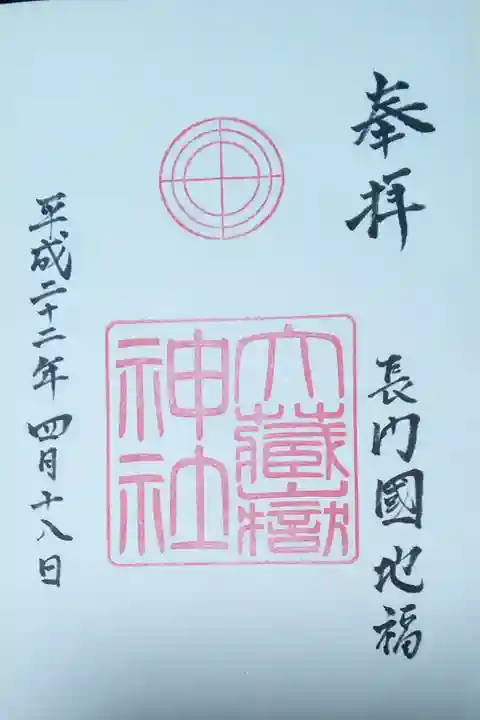 奉拝
長門國地福
大藏嶽
神社
平成二十二年四月十八日